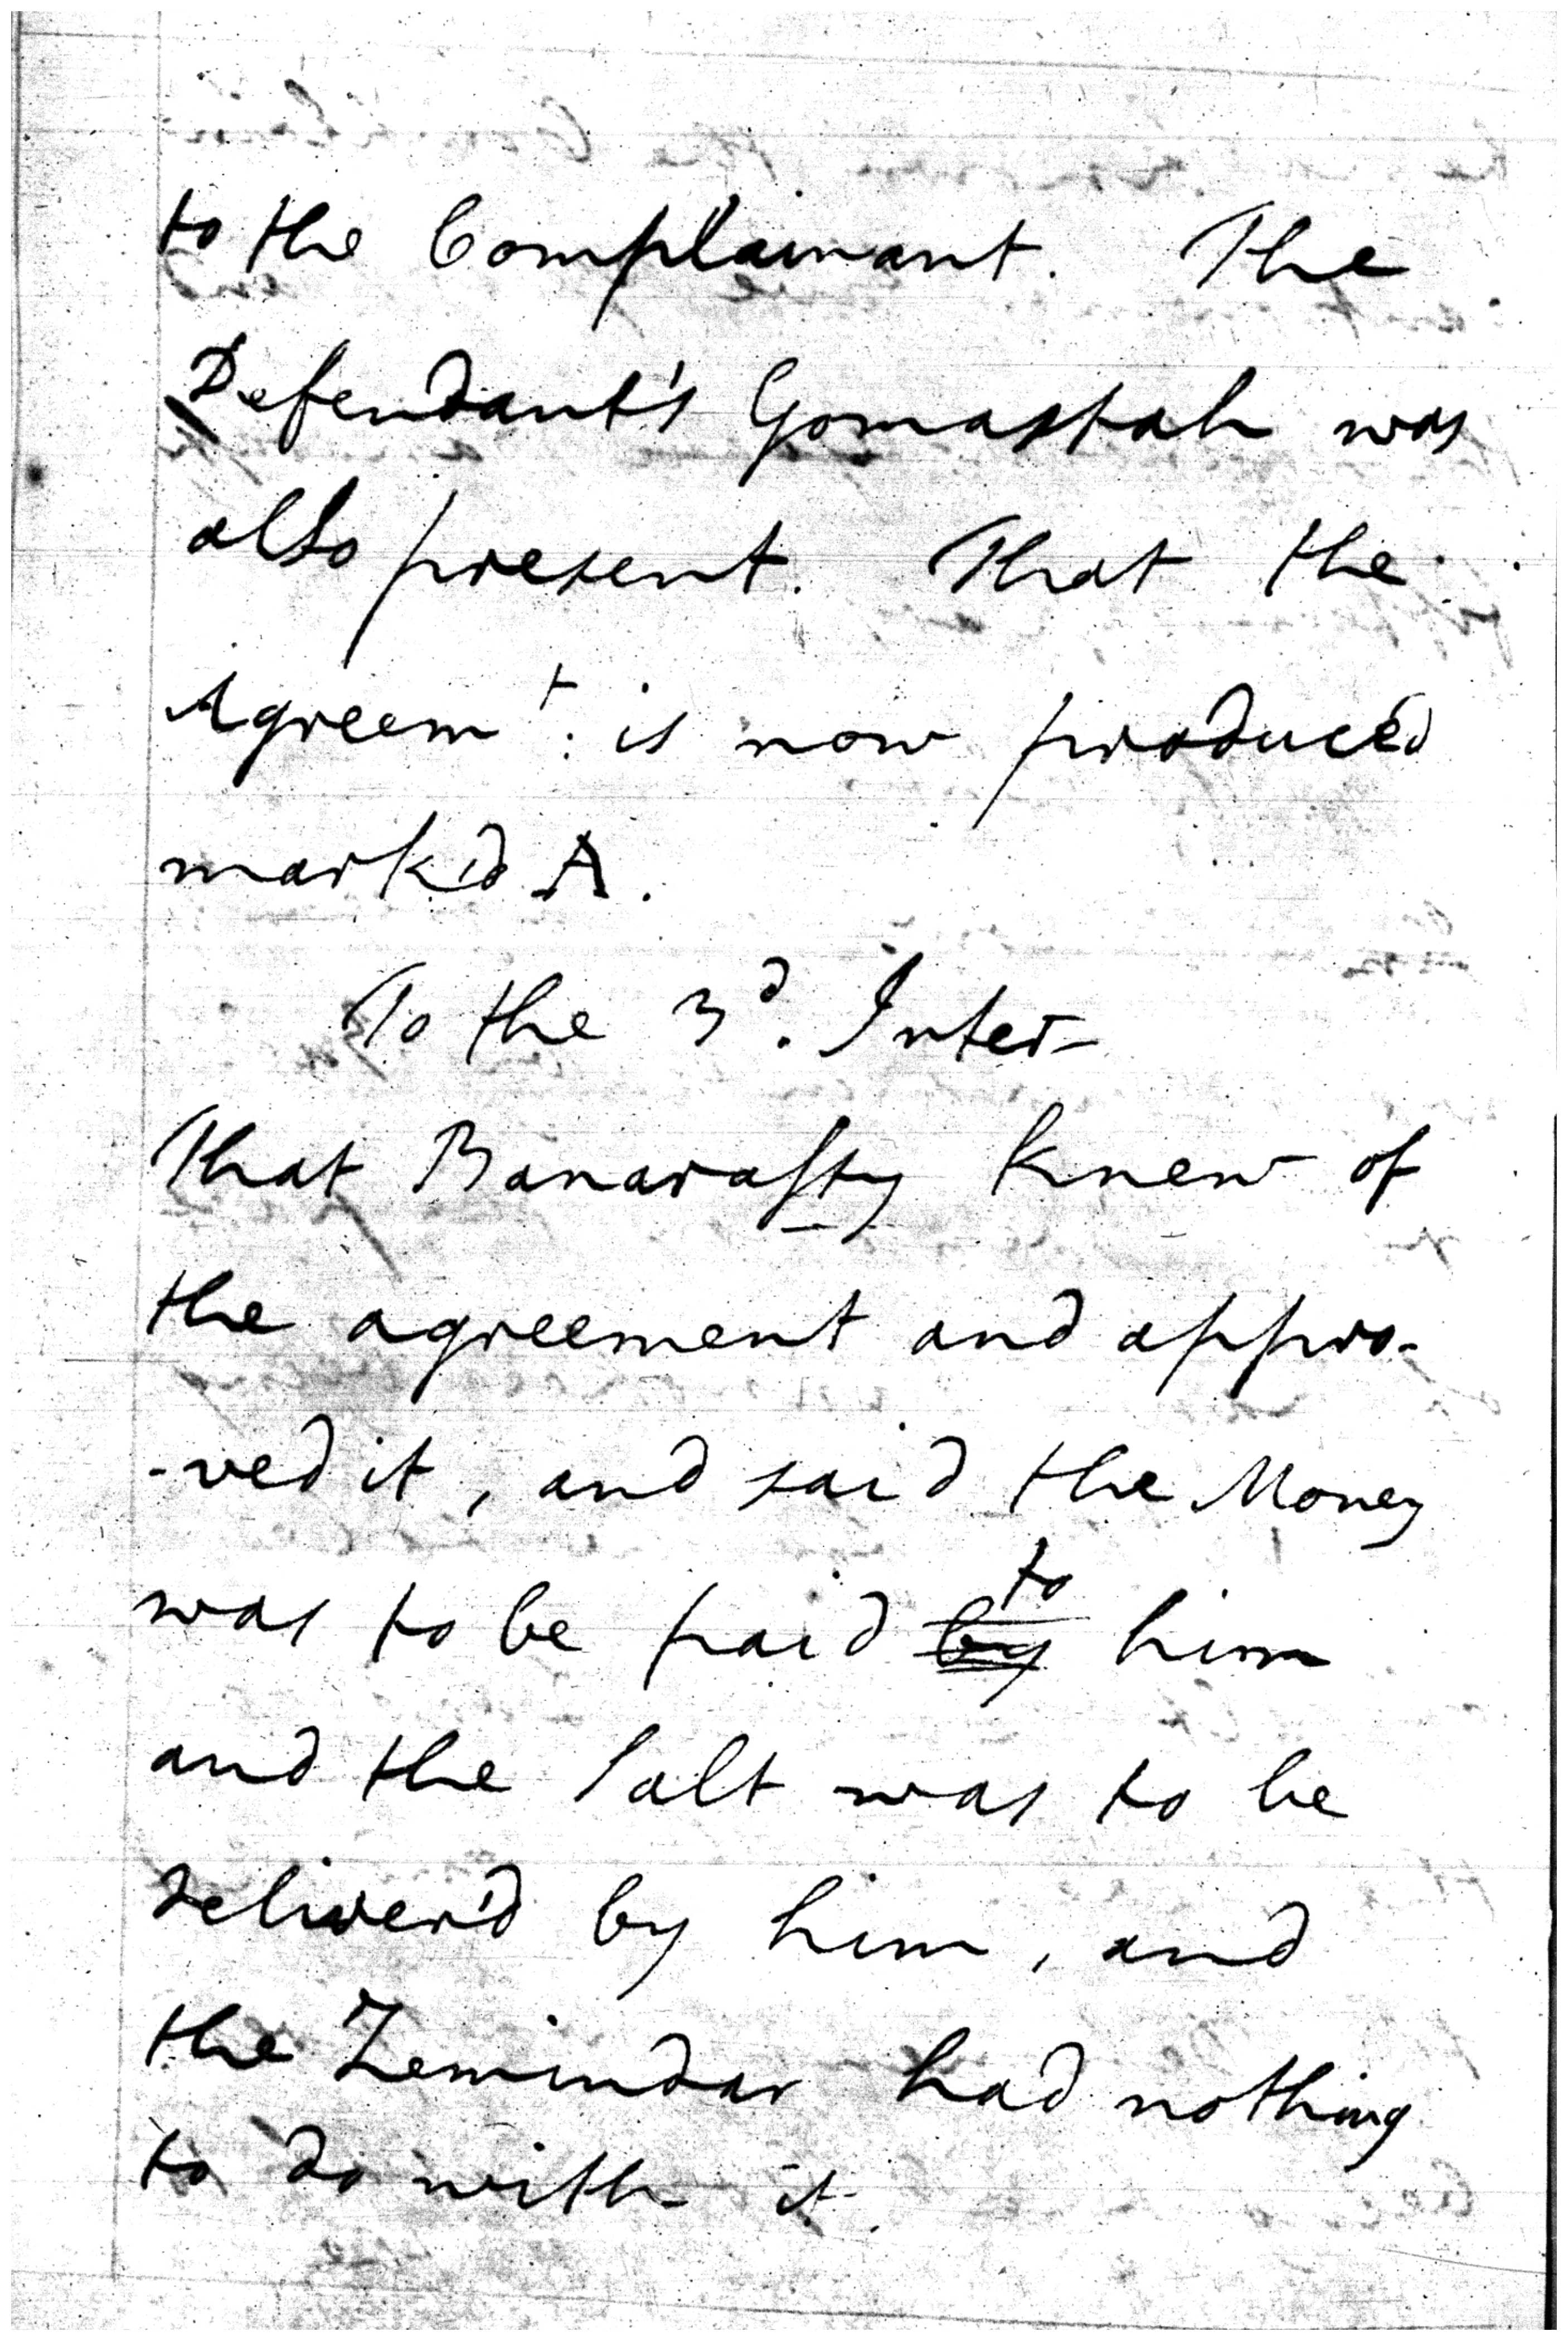 to the Complainant. The
Defendant's Gomastah was
also present. That the
Agreemt. is now produced
mark'd A.
To the 3d. Inter-
That Banarassy knew of
the agreement and appro-
-ved it, and said the Money
was to be paid by to him
and the Salt was to be
deliver'd by him, and
the Zemindar had nothing
to do with it.